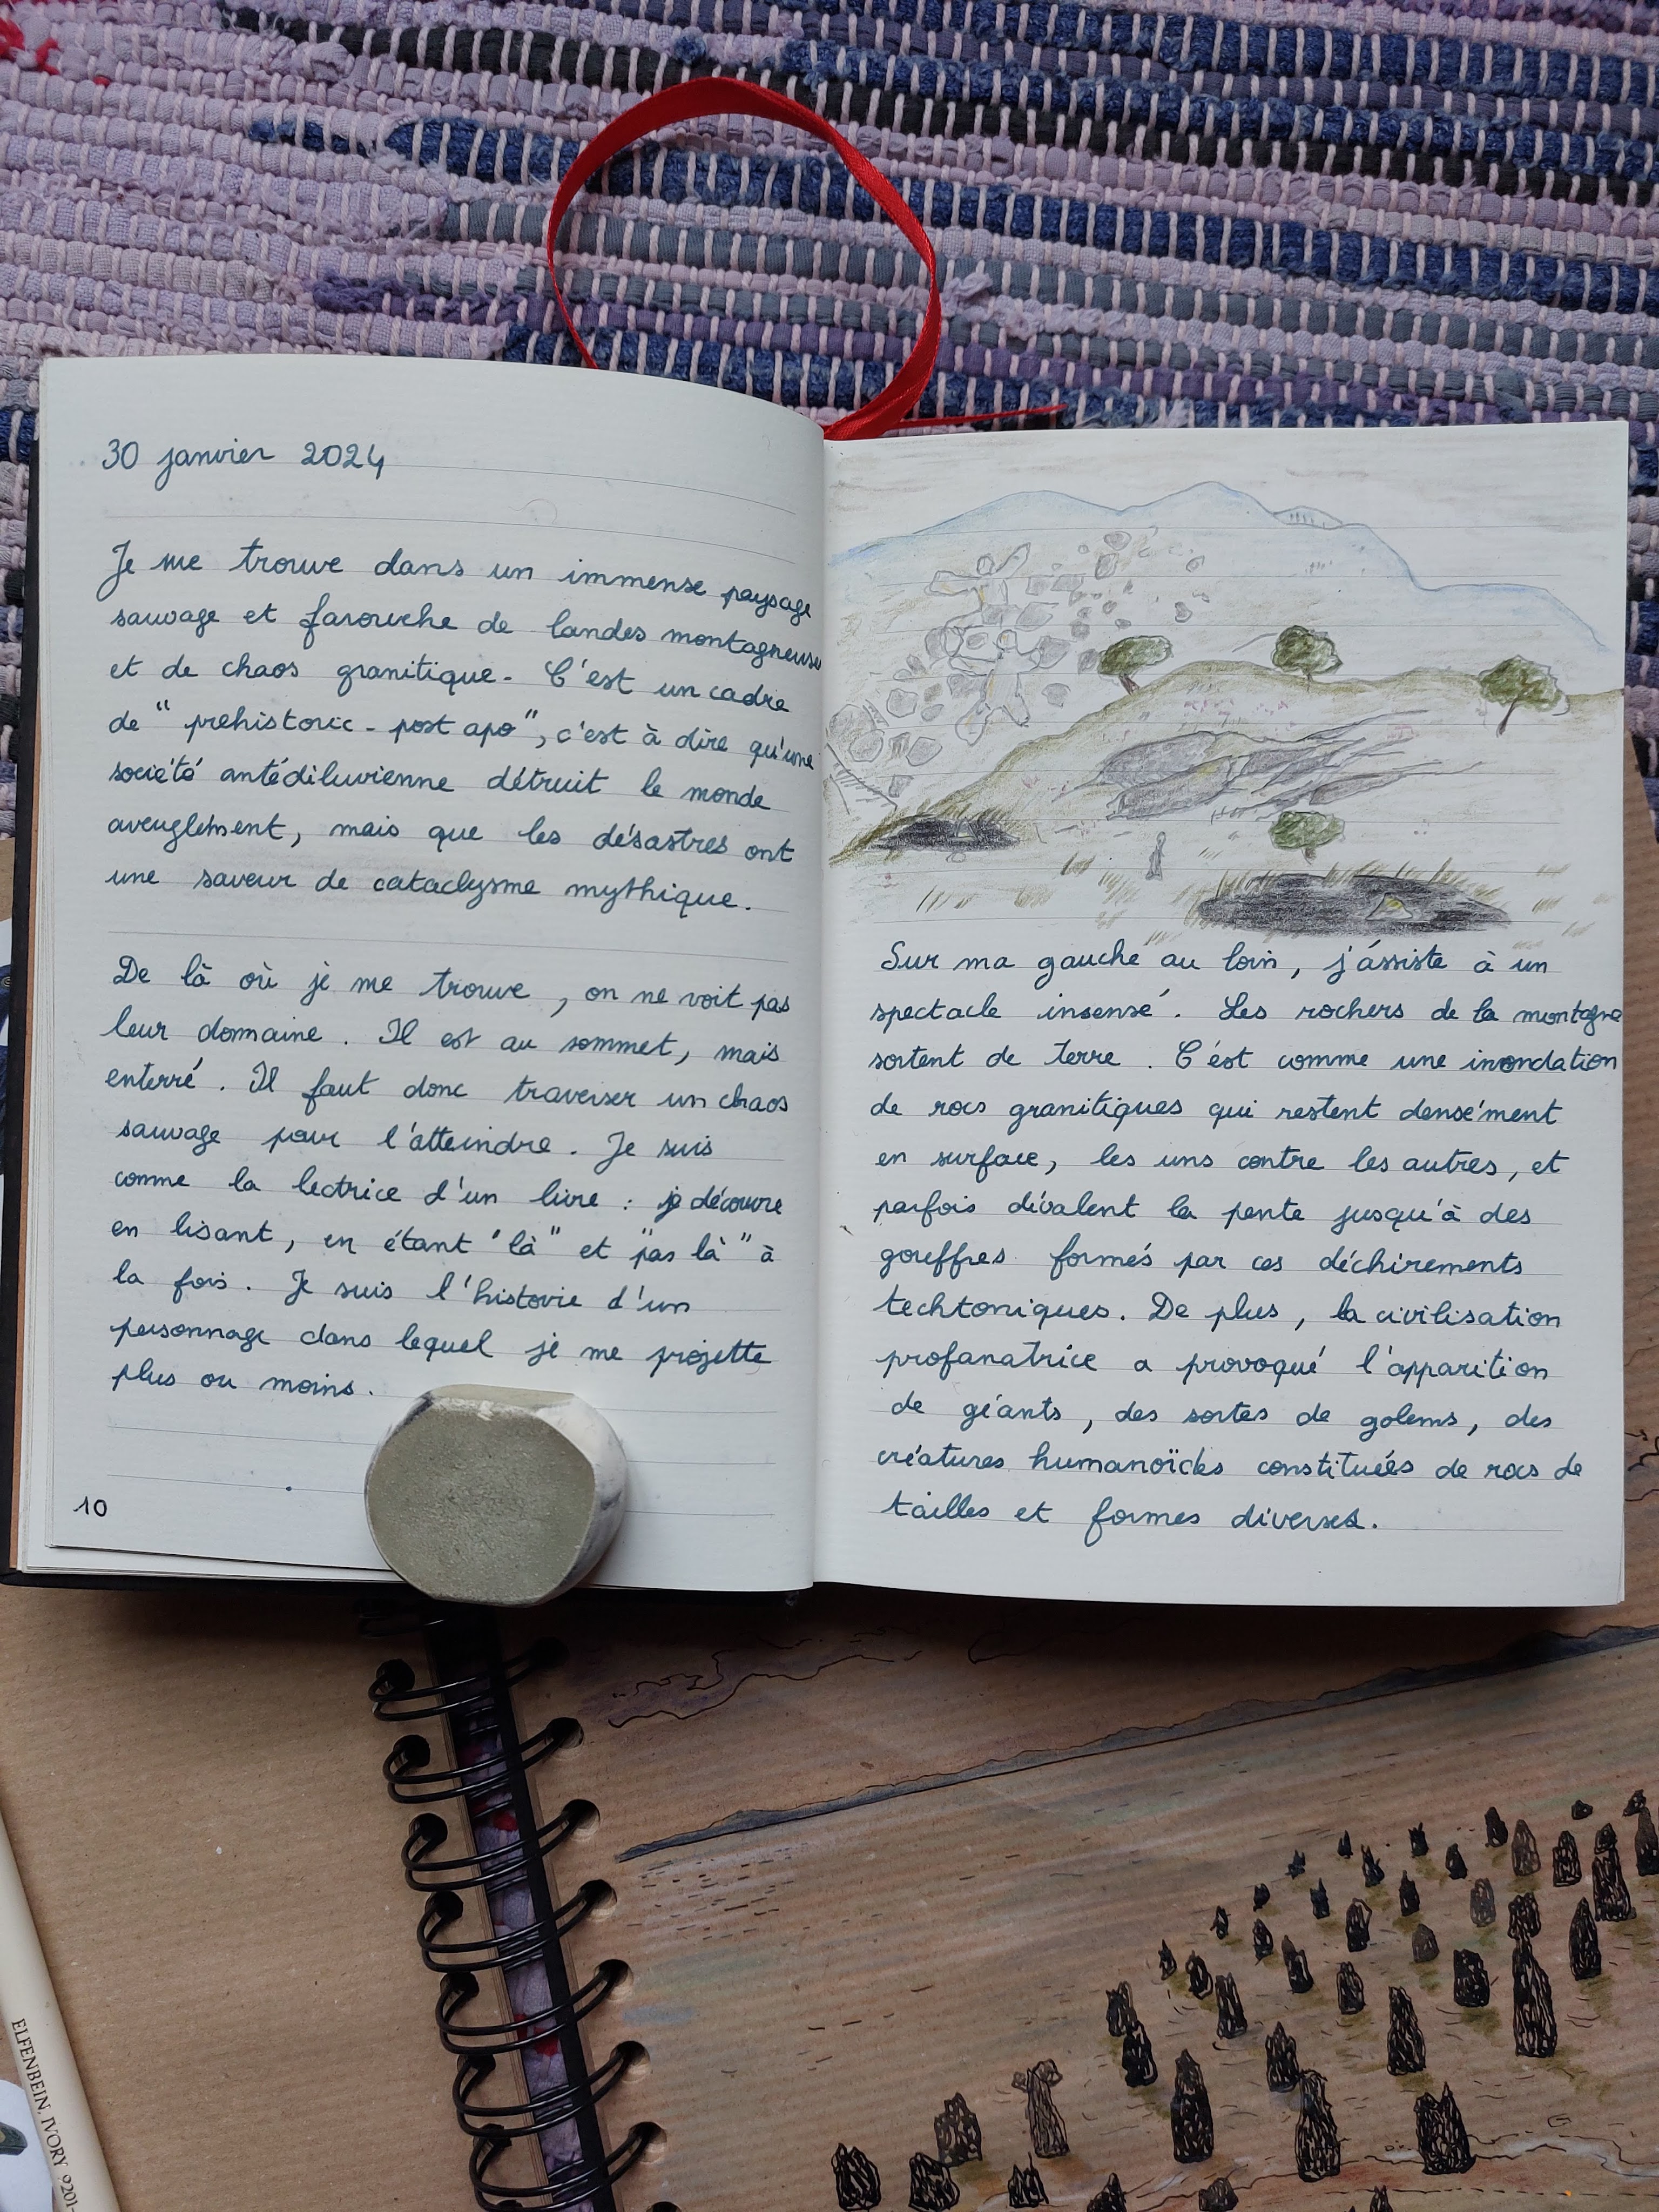 30 janvier 2024
Je me trouve dans un immense paysage
sauvage et farouche de landes montagneuses
et de chaos granitique. C'est un cadre
de "prehistoric-post apo", c'est à dire qu'une
société antédiluvienne détruit le monde
aveuglément, mais que les désastres ont
une saveur de cataclysme mythique.
De là où je me trouve, on ne voit pas
leur domaine. Il est au sommet, mais
enterré. Il faut donc traverser un chaos
sauvage pour l'atteindre. Je suis
comme la lectrice d'un livre : je découvre
en lisant, en étant "là" et "pas là" à
la fois. Je suis l'histoire d'un
personnage dans lequel je me projette
plus ou moins.
10
Sur ma gauche au loin, j'assiste à un
spectacle insensé. Les rochers de la montagne
sortent de terre. C'est comme une inondation
de rocs granitiques qui restent densément
en surface, les uns contre les autres, et
parfois dévalent la pente jusqu'à des
gouffres formés par ces déchirements
techtoniques. De plus, la civilisation
profanatrice a provoqué l'apparition
de géants, des sortes de golems, des
créatures humanoïdes constituées de rocs de
tailles et formes diverses.
ELFENBEIN, IVORY 9201-